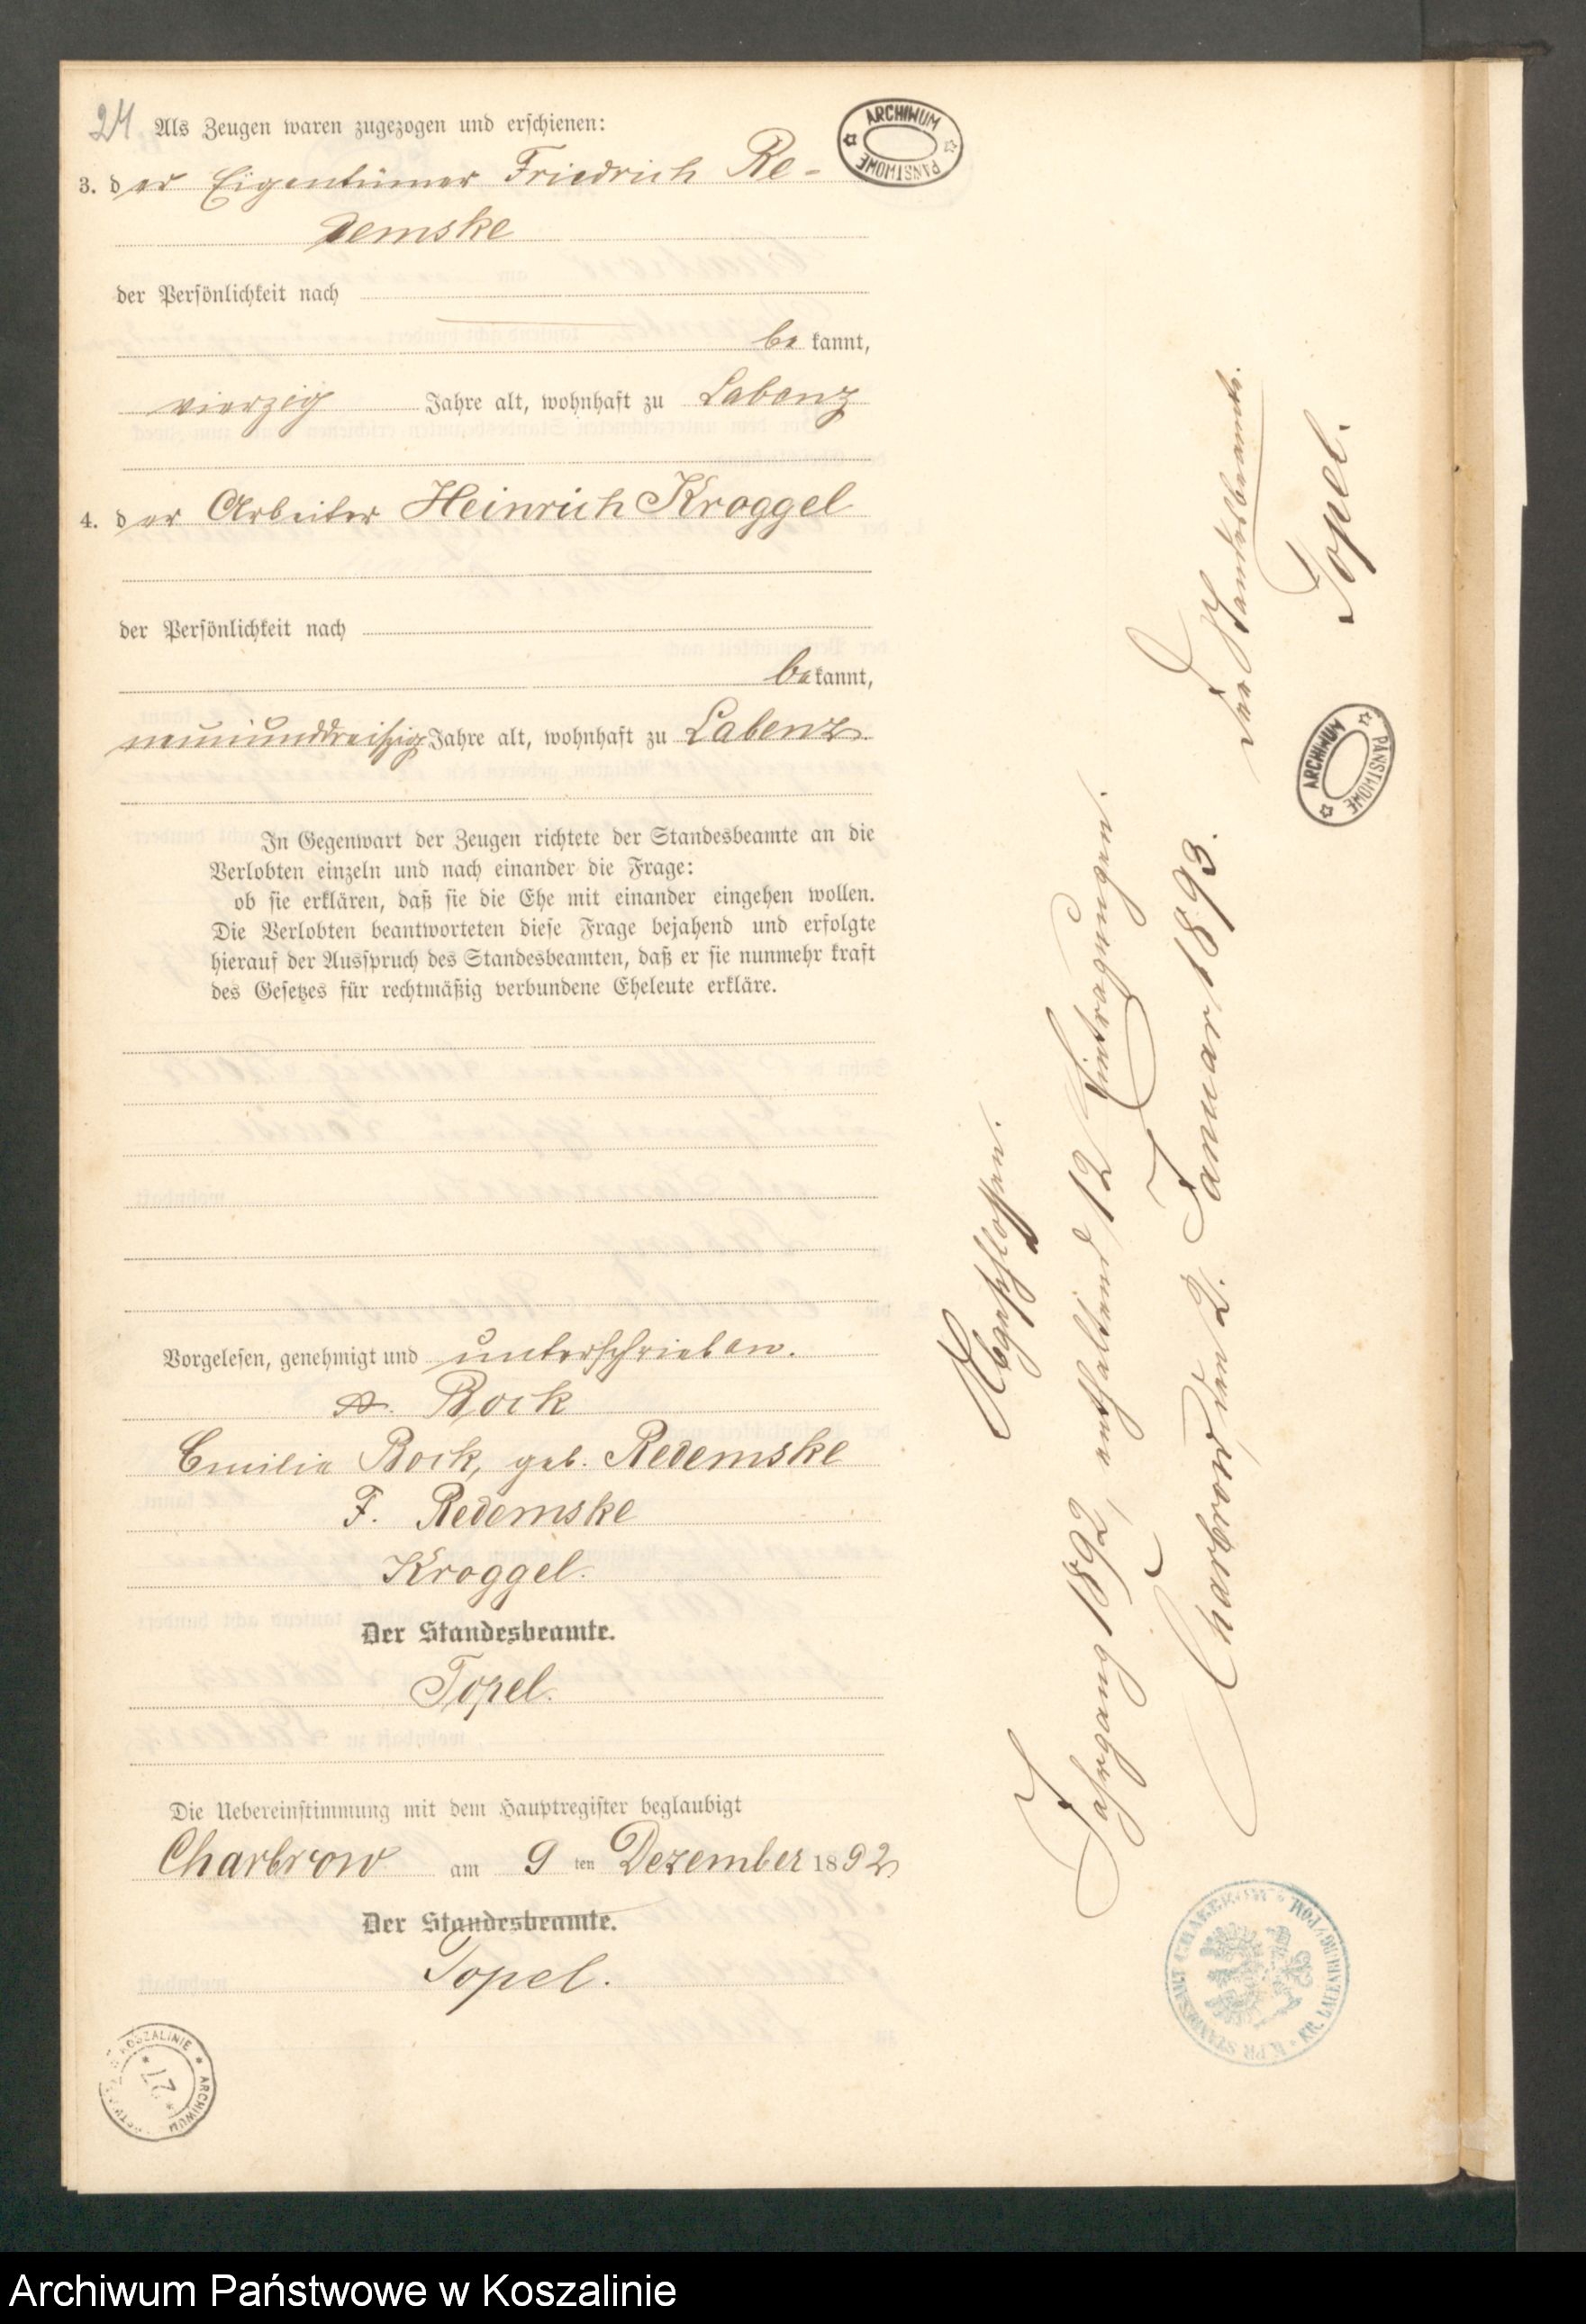 24
Als Zeugen waren zugezogen und erschienen:
3. der Eigentümer Friedrich Re-
demske
der Persönlichkeit nach
bekannt,
vierzig Jahre alt, wohnhaft zu Labenz
4. der Arbeiter Heinrich Kroggel
der Persönlichkeit nach
bekannt,
neununddreißig Jahre alt, wohnhaft zu Labenz.
In Gegenwart der Zeugen richtete der Standesbeamte an die
Verlobten einzeln und nach einander die Frage:
ob sie erklären, daß sie die Ehe mit einander eingehen wollen.
Die Verlobten beantworteten diese Frage bejahend und erfolgte
hierauf der Ausspruch des Standesbeamten, daß er sie nunmehr kraft
des Gesetzes für rechtmäßig verbundene Eheleute erkläre.
Vorgelesen, genehmigt und unterschrieben.
A. Bock
Emilie Bock, geb. Redemske
F. Redemske
Kroggel.
Der Standesbeamte.
Topel.
Die Uebereinstimmung mit dem Hauptregister beglaubigt
Charbrow am 9ten Dezember 1892
Der Standesbeamte.
Topel.
Abgeschlossen.
Jahrgang 1892, enthaltend 12 Eintragungen.
Charbrow, den 2. Januar 1893.
Der Standesbeamte.
Topel.
ARCHIWUM PAŃSTWOWE
ARCHIWUM PAŃSTWOWE
K. PR. STANDESAMT CHARBROW * KR. LAUENBURG / POM.
ARCHIWUM KOSZALINIE
Archiwum Państwowe w Koszalinie